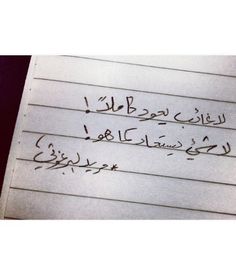 لا غائب يعود كاملاً!
لا شيء يستعاد كما هو!
*مريد البرغوثي